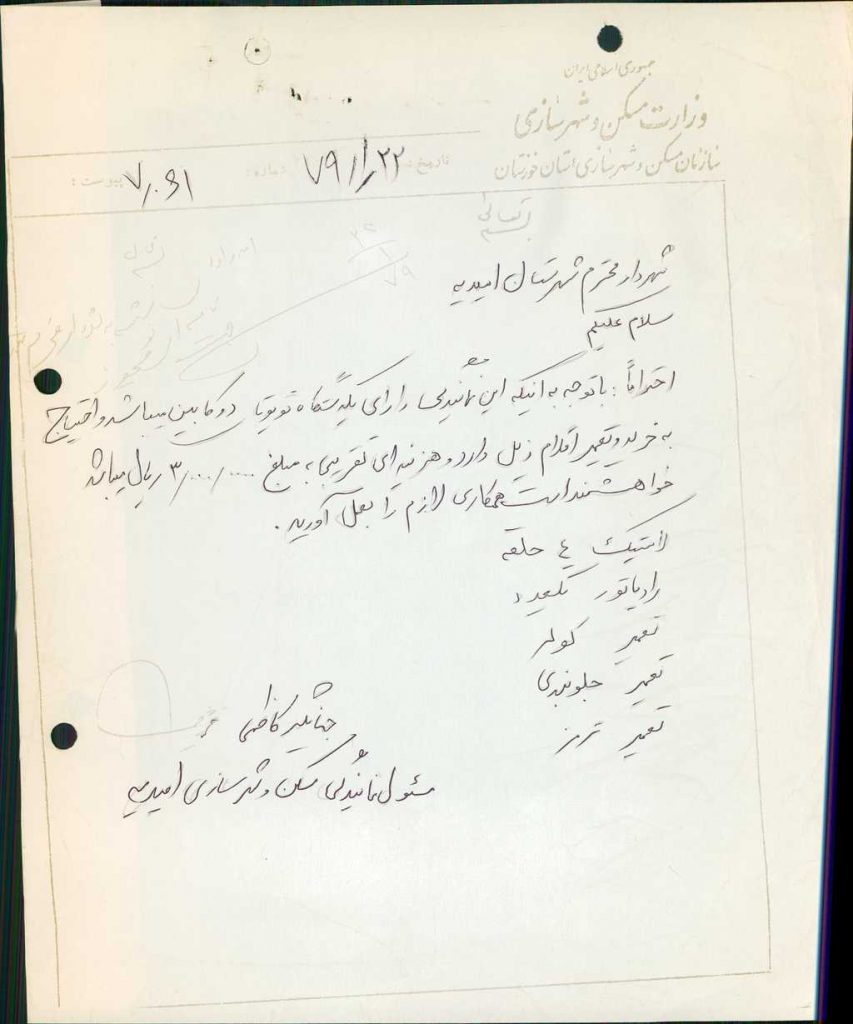 جمهوری اسلامی ایران
وزارت مسکن و شهرسازی
سازمان مسکن و شهرسازی استان خوزستان
تاریخ: ۷۹/۱/۲۲ شماره: ۷۰۶۱ پیوست:
بسمه تعالی
شهردار محترم شهرستان امیدیه
سلام علیکم
احتراماً: با توجه به اینکه این نمایندگی دارای یکدستگاه تویوتا دو کابین میباشد و احتیاج
به خرید و تعمیر اقلام ذیل دارد و هزینه ای تقریبی به مبلغ ۳/۰۰۰/۰۰۰ ریال میباشد
خواهشمند است همکاری لازم را بعمل آورید.
لاستیک ٤ حلقه
رادیاتور یکعدد
تعمیر کولر
تعمیر جلوبندی
تعمیر ترمز
کاظمی
مسئول نمایندگی مسکن و شهرسازی امیدیه